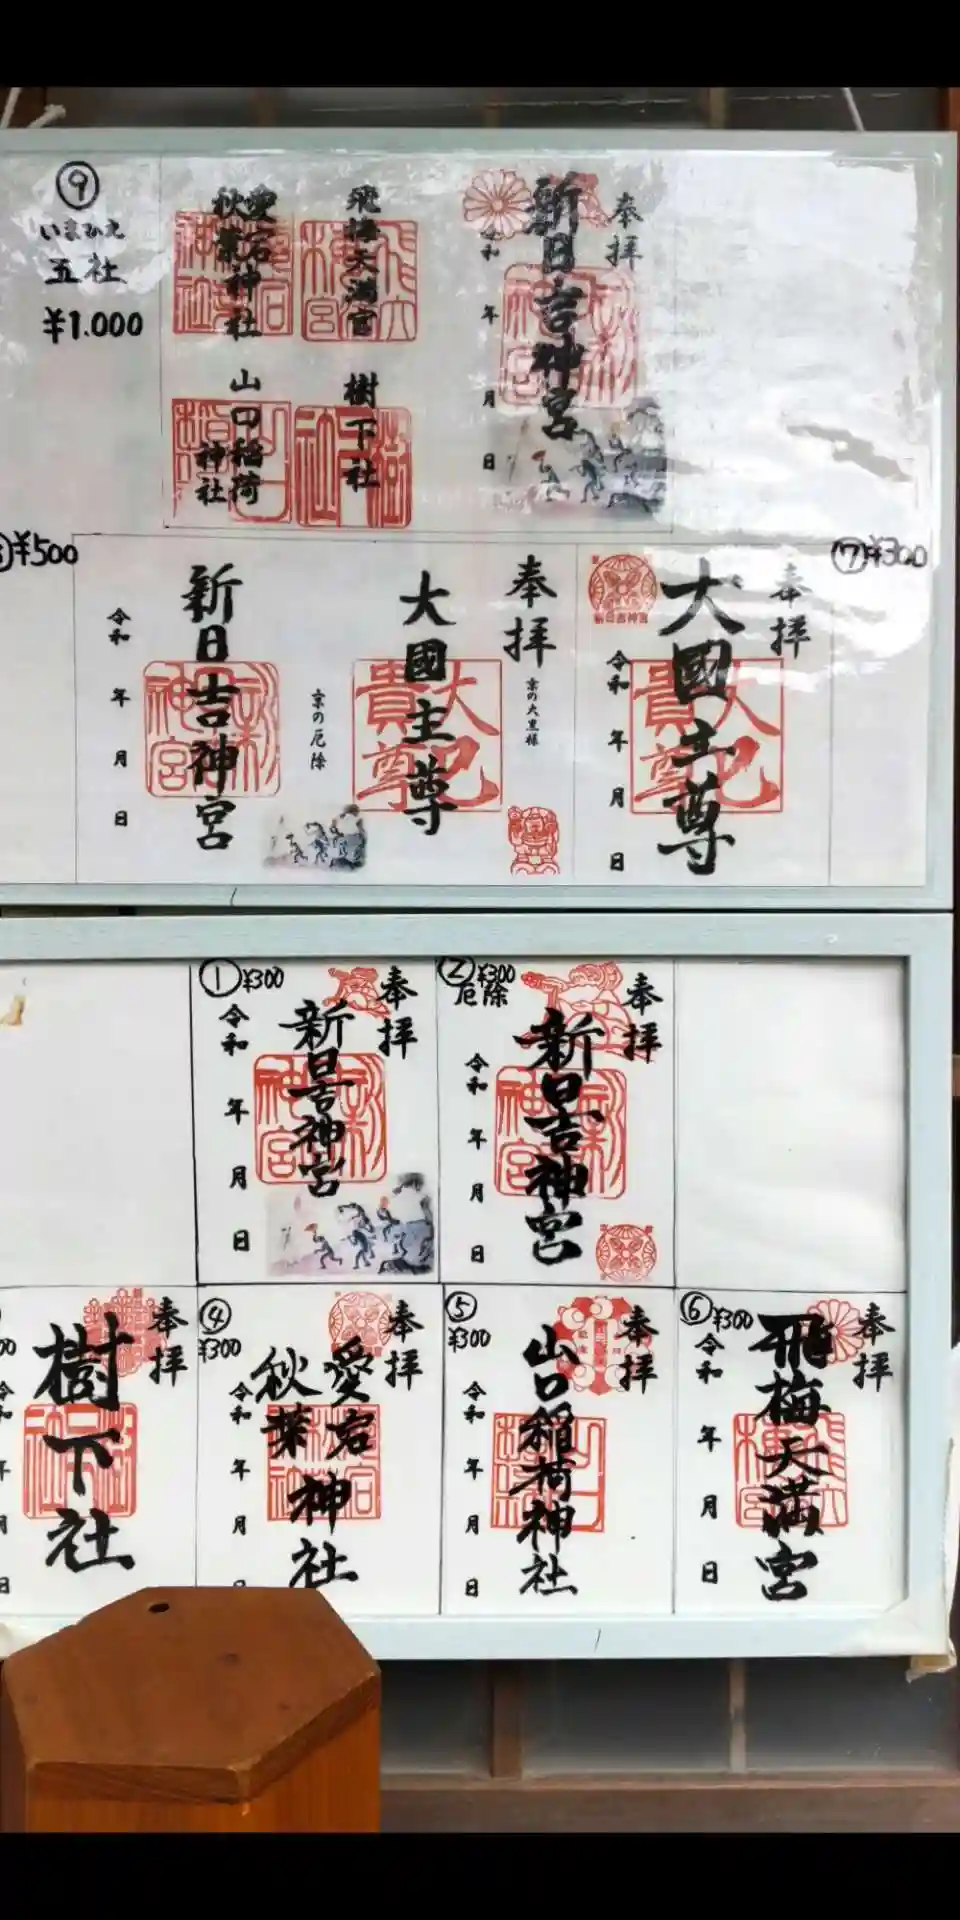 ⑨
いまひえ
五社
¥1.000
奉拝
新日吉神宮
令和 年 月 日
飛梅天満宮
樹下社
愛宕
秋葉神社
山口稲荷
神社
¥500
奉拝
京の大黒様
大國主尊
京の厄除
新日吉神宮
令和 年 月 日
⑦¥300
奉拝
大國主尊
令和 年 月 日
大己
貴尊
新日吉神宮
①¥300
奉拝
新日吉神宮
令和 年 月 日
②¥300
厄除
奉拝
新日吉神宮
令和 年 月 日
奉拝
樹下社
④
¥300
奉拝
愛宕
秋葉
神社
令和 年 月 日
⑤
¥300
奉拝
山口稲荷神社
令和 年 月 日
⑥¥300
奉拝
飛梅天満宮
令和 年 月 日